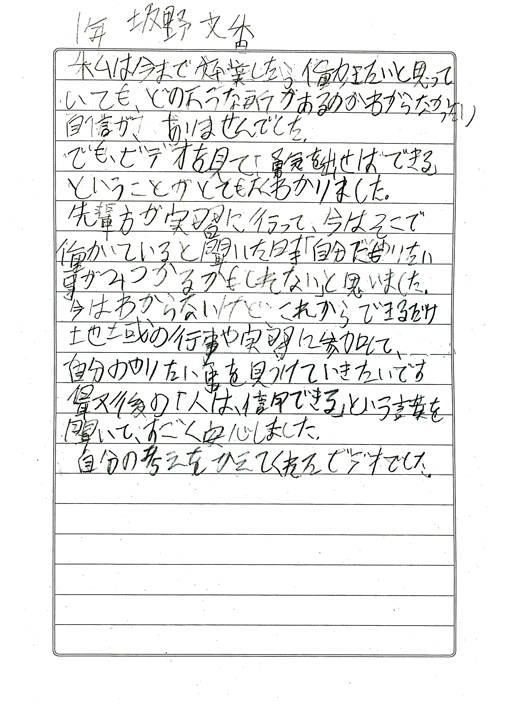 1年 坂野 文香
私は今まで卒業したら働力きたいと思って
いても、どのような所があるのかわからなかったり
自信が、ありませんでした。
でも、ビデオを見て「勇気を出せばできる」
ということがとてもよくわかりました。
先輩方が実習に行って、今はそこで
働かていると聞いた時「自分だもやりたい
事がみつかるかもしれない」と思いました。
今はわからないけど これから できるだけ
地域の行事や実習に参加して、
自分のやりたい事を見つけていきたいです
最後の「人は、信用できる」という言葉を
聞いて、すごく安心しました。
自分の考えをかえてくれたビデオでした。